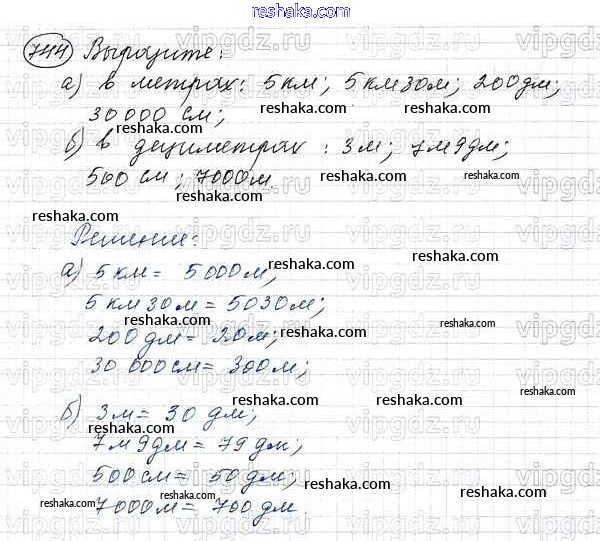 reshaka.com
744 Выразите:
а) в метрах: 5 км; 5 км 30 м; 200 дм;
30 000 см;
б) в дециметрах: 3 м; 7 м 9 дм;
500 см; 7000 м.
Решение:
а) 5 км = 5000 м;
5 км 30 м = 5030 м;
200 дм = 20 м;
30 000 см = 300 м;
б) 3 м = 30 дм;
7 м 9 дм = 79 дм;
500 см = 50 дм;
7000 м = 700 дм.